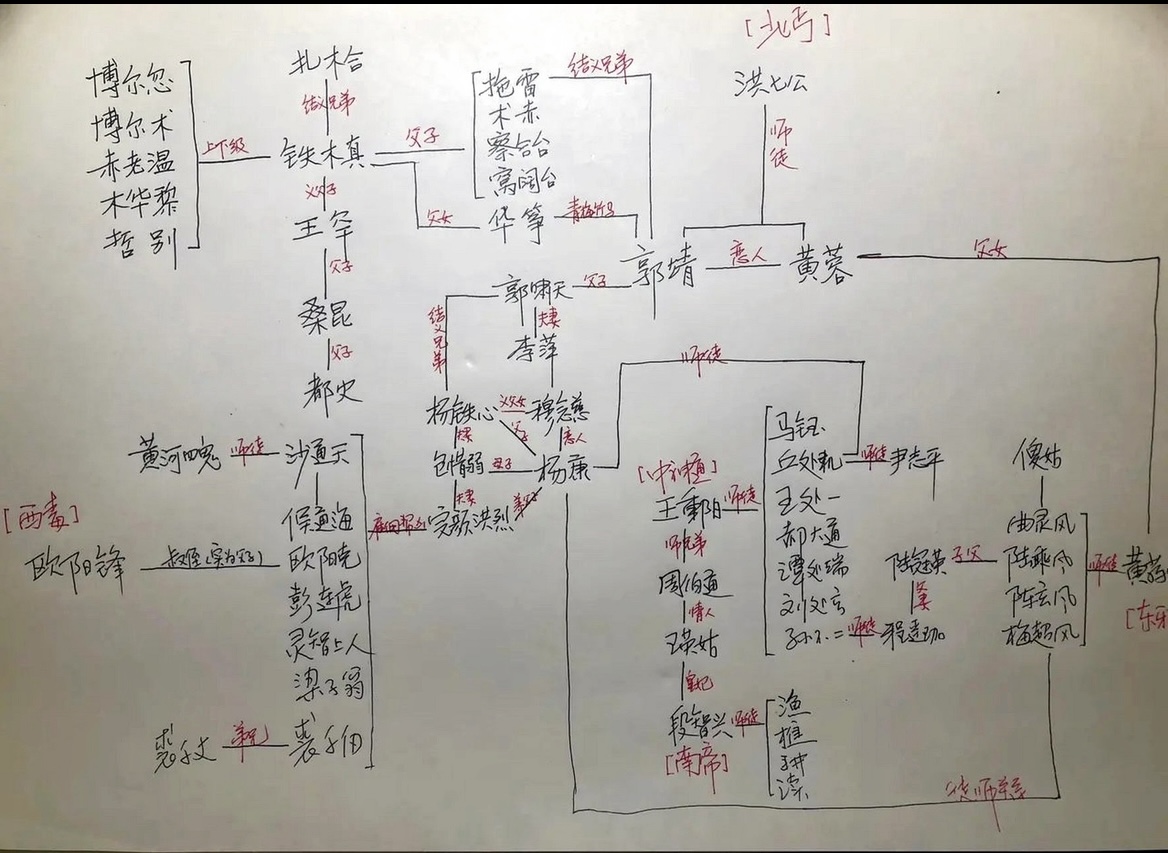 [北丐]
洪七公
师徒
博尔忽
博尔术
赤老温
木华黎
哲别
上下级
扎木合
结义兄弟
铁木真
父子
拖雷
术赤
察合台
窝阔台
结义兄弟
父女
华筝
青梅竹马
义父子
王罕
父子
桑昆
父子
都史
郭靖
恋人
黄蓉
父女
郭啸天
父子
夫妻
李萍
结义兄弟
杨铁心
义父女
穆念慈
夫妻
父子
恋人
包惜弱
母子
杨康
夫妻
完颜洪烈
师徒
黄河四鬼
师徒
沙通天
侯通海
欧阳克
彭连虎
灵智上人
梁子翁
裘千仞
[西毒]
欧阳锋
叔侄(实为父子)
裘千丈
[中神通]
王重阳
师徒
马钰
丘处机
王处一
郝大通
谭处端
刘处玄
孙不二
师徒
尹志平
师徒
程瑶迦
师兄弟
周伯通
情人
瑛姑
皇妃
段智兴
[南帝]
师徒
渔
樵
耕
陆冠英
子父
夫妻
傻姑
曲灵风
陆乘风
陈玄风
梅超风
师徒
黄药
[东邪